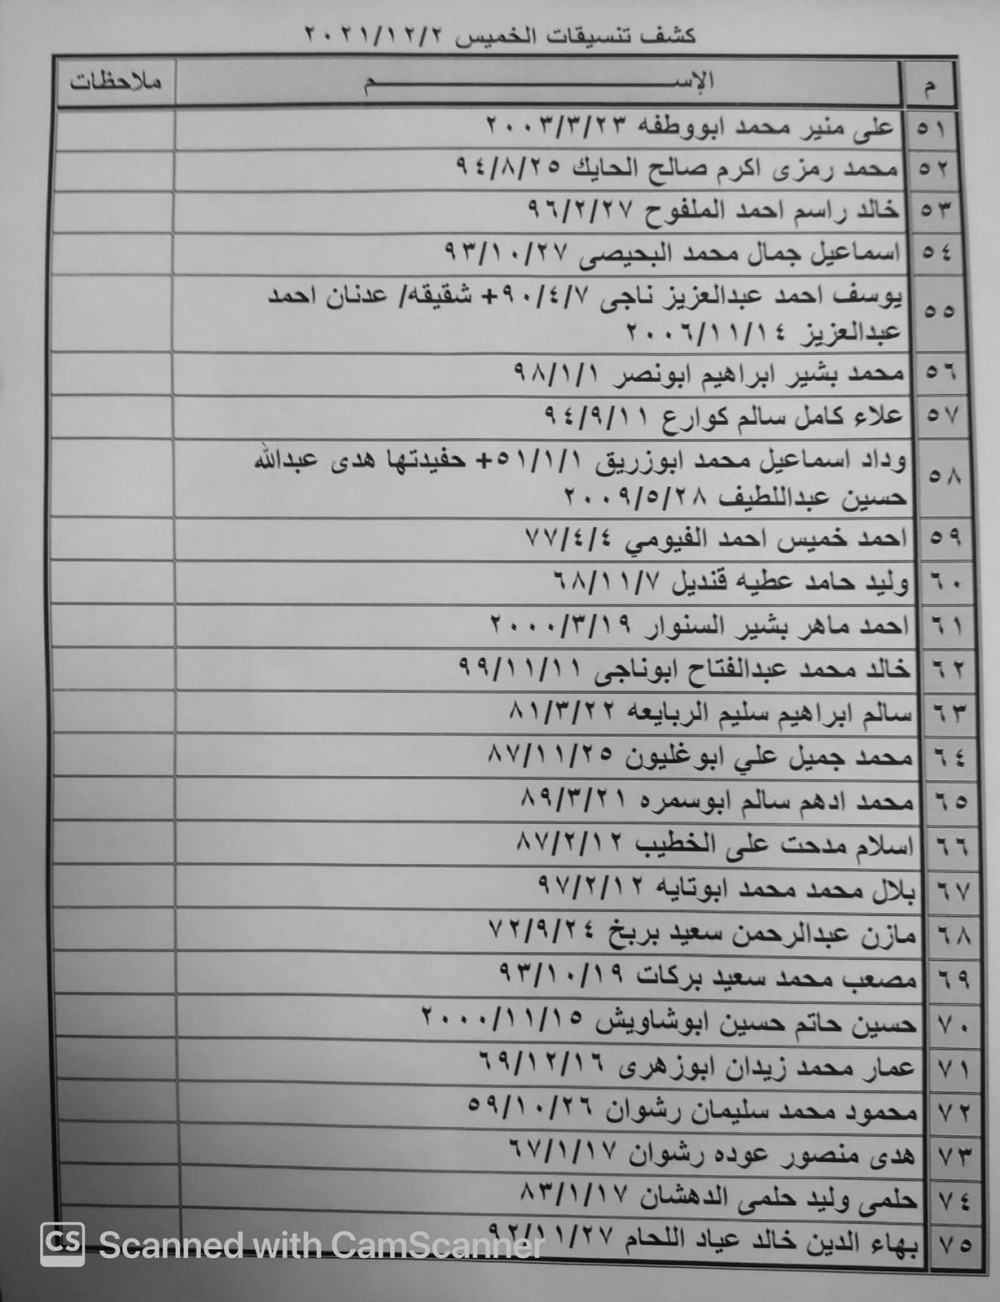 كشف تنسيقات الخميس ٢٠٢١/١٢/٢
م الإســـــــم ملاحظات
٥١ على منير محمد ابووطفه ٢٠٠٣/٣/٢٣
٥٢ محمد رمزى اكرم صالح الحايك ٩٤/٨/٢٥
٥٣ خالد راسم احمد الملفوح ٩٦/٢/٢٧
٥٤ اسماعيل جمال محمد البحيصى ٩٣/١٠/٢٧
٥٥ يوسف احمد عبدالعزيز ناجى ٩٠/٤/٧+ شقيقه/ عدنان احمد
عبدالعزيز ٢٠٠٦/١١/١٤
٥٦ محمد بشير ابراهيم ابونصر ٩٨/١/١
٥٧ علاء كامل سالم كوارع ٩٤/٩/١١
٥٨ وداد اسماعيل محمد ابوزريق ٥١/١/١+ حفيدتها هدى عبدالله
حسين عبداللطيف ٢٠٠٩/٥/٢٨
٥٩ احمد خميس احمد الفيومي ٧٧/٤/٤
٦٠ وليد حامد عطيه قنديل ٦٨/١١/٧
٦١ احمد ماهر بشير السنوار ٢٠٠٠/٣/١٩
٦٢ خالد محمد عبدالفتاح ابوناجى ٩٩/١١/١١
٦٣ سالم ابراهيم سليم الربايعه ٨١/٣/٢٢
٦٤ محمد جميل علي ابوغليون ٨٧/١١/٢٥
٦٥ محمد ادهم سالم ابوسمره ٨٩/٣/٢١
٦٦ اسلام مدحت على الخطيب ٨٧/٢/١٢
٦٧ بلال محمد محمد ابوتايه ٩٧/٢/١٢
٦٨ مازن عبدالرحمن سعيد بربخ ٧٢/٩/٢٤
٦٩ مصعب محمد سعيد بركات ٩٣/١٠/١٩
٧٠ حسين حاتم حسين ابوشاويش ٢٠٠٠/١١/١٥
٧١ عمار محمد زيدان ابوزهرى ٦٩/١٢/١٦
٧٢ محمود محمد سليمان رشوان ٥٩/١٠/٢٦
٧٣ هدى منصور عوده رشوان ٦٧/١/١٧
٧٤ حلمى وليد حلمى الدهشان ٨٣/١/١٧
٧٥ بهاء الدين خالد عياد اللحام ٩٢/١١/٢٧
CS Scanned with CamScanner